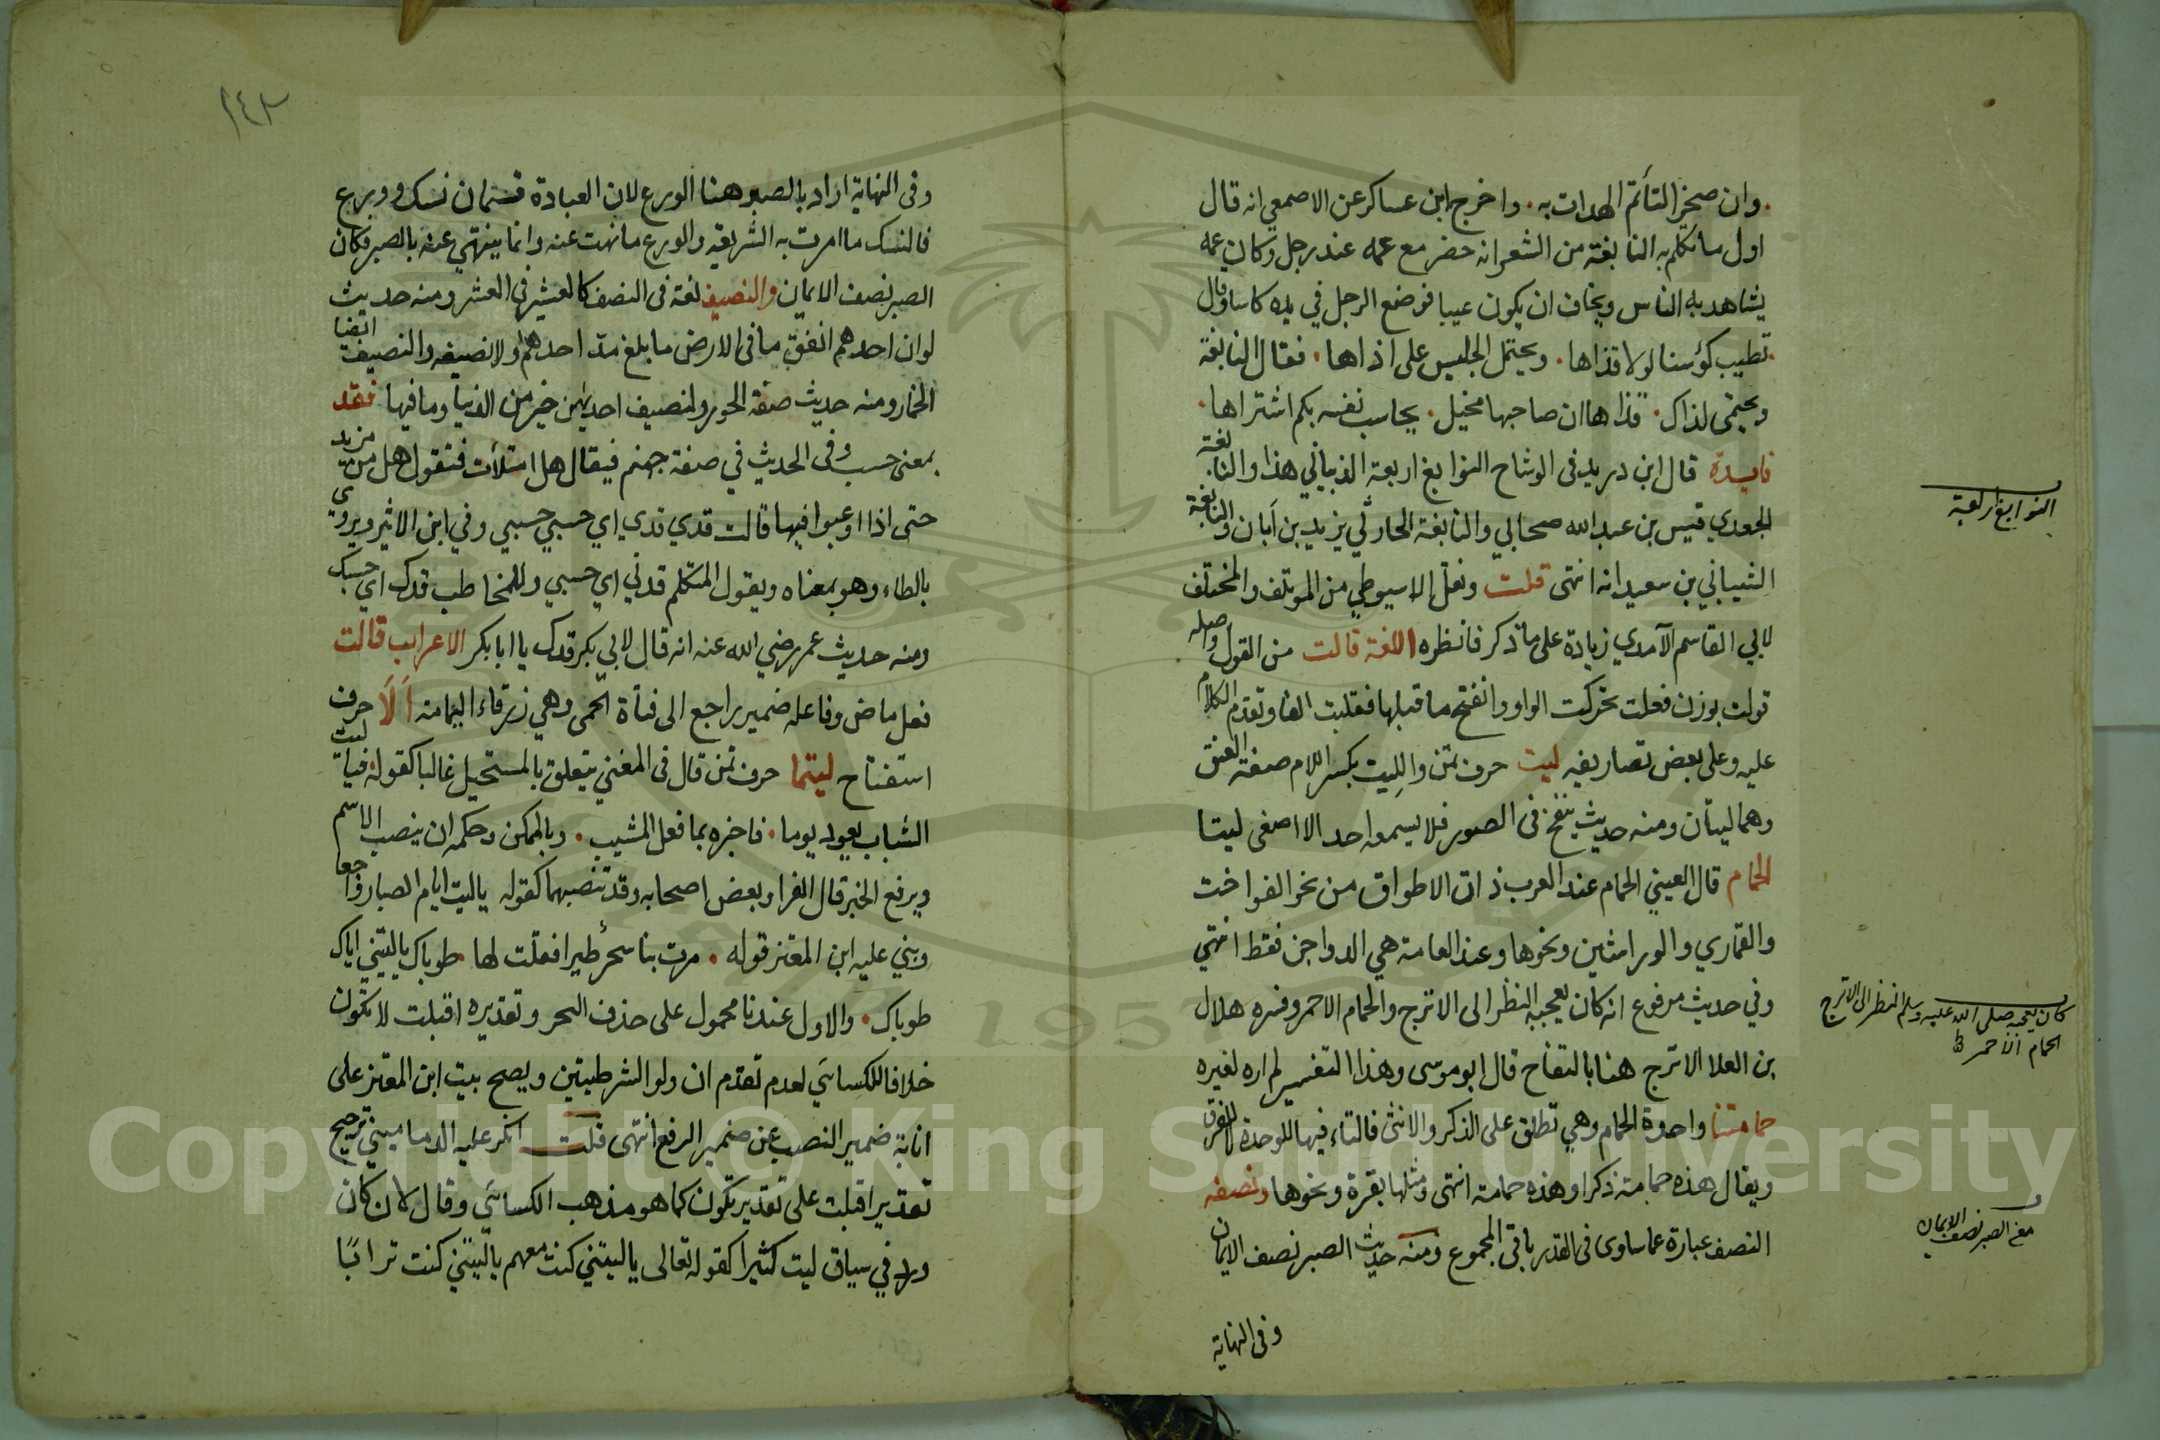 وان صخرا لتأتم الهداة به. واخرج ابن عساكر عن الاصمعي انه قال
اول ما تكلم به النابغة من الشعر انه حضر مع عمه عند رجل وكان عمه
يشاهد به الناس ويخاف ان يكون عيبا فوضع الرجل في يده كاسا وقال
تطيب كؤسنا لولا قذاها. ويحتمل الجليس على اذاها. فقال النابغة
وحمي لذاك. قذاها ان صاحبها بخيل. يحاسب نفسه بكم اشتراها.
فايدة قال ابن دريد في الوشاح النوابغ اربعة الذبياني هذا والنابغة
الجعدي قيس بن عبد الله صحابي والنابغة الحارثي يزيد بن ابان والنابغة
الشيباني بن سعيدانه انتهى قلت ونقل الاسيوطي من الموتلف والمختلف
لابي القاسم الآمدي زيادة على ما ذكر فانظره اللغة قالت من القول واصله
قولت بوزن فعلت تحركت الواو وانفتح ما قبلها فقلبت الفا وتقدم الكلام
عليه وعلى بعض تصاريفه ليت حرف تمن والليت بكسر اللام صفحة العنق
وهما ليتان ومنه حديث ينفخ في الصور فلا يسمعه احد الا اصغى ليتا
الحمام قال العيني الحمام عند العرب ذات الاطواق من نحو الفواخت
والقماري والوراشين ونحوها وعند العامة هي الدواجن فقط انتهي
وفي حديث مرفوع انه كان يعجبه النظر الى الاترج والحمام الاحمر وفسره هلال
بن العلا الاترج هنا بالتفاح قال ابو موسى وهذا التفسير لم اره لغيره
حمامتنا واحدة الحمام وهي تطلق على الذكر والانثى فالتاء فيها للوحدة لا للفرق
ويقال هذه حمامة ذكرا وهذه حمامة انتهى ومثلها بقرة ونحوها ونصفه
النصف عبارة عما ساوى في القدر باقي المجموع ومنه حديث الصبر نصف الايمان
وفي النهاية
النوابغ اربعة
كان يعجبه صلى الله عليه وسلم النظر الى الاترج
الحمام الاحمر
معنى الصبر نصف الايمان
٢٤٣
وفي النهاية اراد بالصبر هنا الورع لان العبادة قسمان نسك وورع
فالنسك ما امرت به الشريعة والورع ما نهت عنه وانما ينتهي عنه بالصبر فكان
الصبر نصف الايمان والنصيف لغة في النصف كالعشير في العشر ومنه حديث
لو ان احدهم انفق ما في الارض ما بلغ مد احدهم ولا نصيفه والنصيف ايضا
الخمار ومنه حديث صفة الحور ولنصيف احديهن خير من الدنيا وما فيها فقد
بمعنى حسب وفي الحديث في صفة جهنم فيقال هل امتلأت فتقول هل من مزيد
حتى اذا اوعبوا فيها قالت قدي قدي اي حسبي حسبي وفي ابن الاثير ويروي
بالطاء وهو بمعناه ويقول المتكلم قدني اي حسبي وللمخاطب قدك اي حسبك
ومنه حديث عمر رضي الله عنه انه قال لابي بكر قدك يا ابا بكر الاعراب قالت
فعل ماض وفاعله ضمير راجع الى فتاة الحي وهي زرقاء اليمامة ألا حرف
استفتاح ليتما حرف تمن قال في المغني يتعلق بالمستحيل غالبا كقوله فياليت
الشباب يعود يوما. فاخبره بما فعل المشيب. وبالممكن وحكمه ان ينصب الاسم
ويرفع الخبر قال الفرا وبعض اصحابه وقد تنصبهما كقوله ياليت ايام الصبا رواجعا
وبني عليه ابن المعتز قوله. مرت بنا سحرا طير فقلت لها. طوباك ياليتني اياك
طوباك. والاول عندنا محمول على حذف الخبر وتقديره اقبلت لا تكون
خلافا للكساءي لعدم تقدم ان ولو الشرطيتين ويصح بيت ابن المعتز على
انابة ضمير النصب عن ضمير الرفع انتهى قلت انكر عليه الدماميني ترجيح
تقدير اقبلت على تقدير تكون كما هو مذهب الكساءي وقال لان كان
ورد في سياق ليت كثيرا كقوله تعالى ياليتني كنت معهم ياليتني كنت ترابا